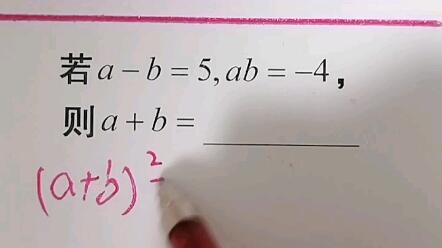 若 a − b = 5, ab = −4，
则 a + b = ________
(a+b)² =